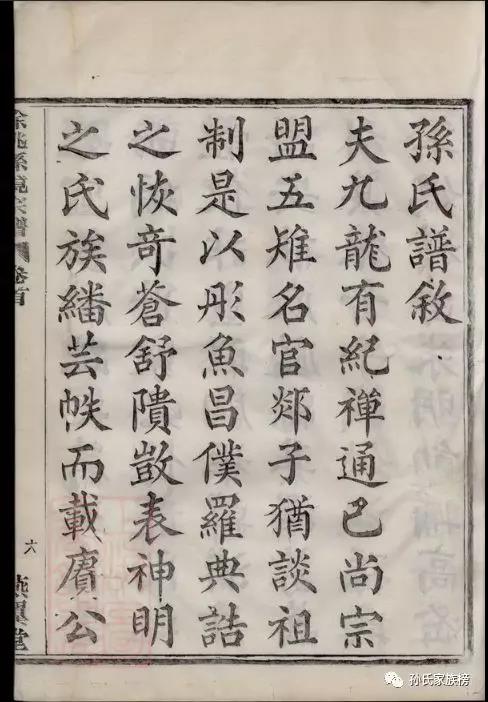 孫氏譜敘
夫九龍有紀禪通巳尚宗
盟五雉名官郯子猶談祖
制是以彤魚昌僕羅典誥
之恢奇蒼舒隤敳表神明
之氏族繙芸帙而載賡公
餘姚孫境宗譜 卷首 六 燕翼堂
孙氏家族榜